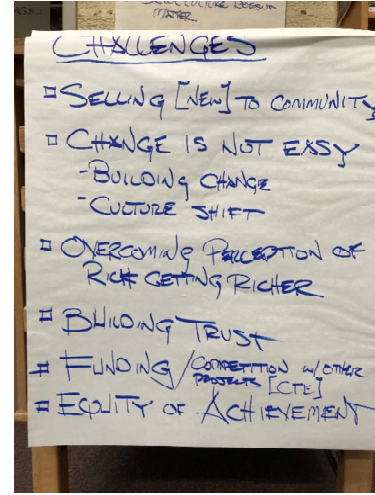 CULTURE DOESN'T
MATTER
CHALLENGES
SELLING [NEW] TO COMMUNITY
CHANGE IS NOT EASY
- BUILDING CHANGE
- CULTURE SHIFT
OVERCOMING PERCEPTION OF
RICH GETTING RICHER
BUILDING TRUST
FUNDING / COMPETITION W/ OTHER
PROJECTS [CTE]
EQUITY OF ACHIEVEMENT